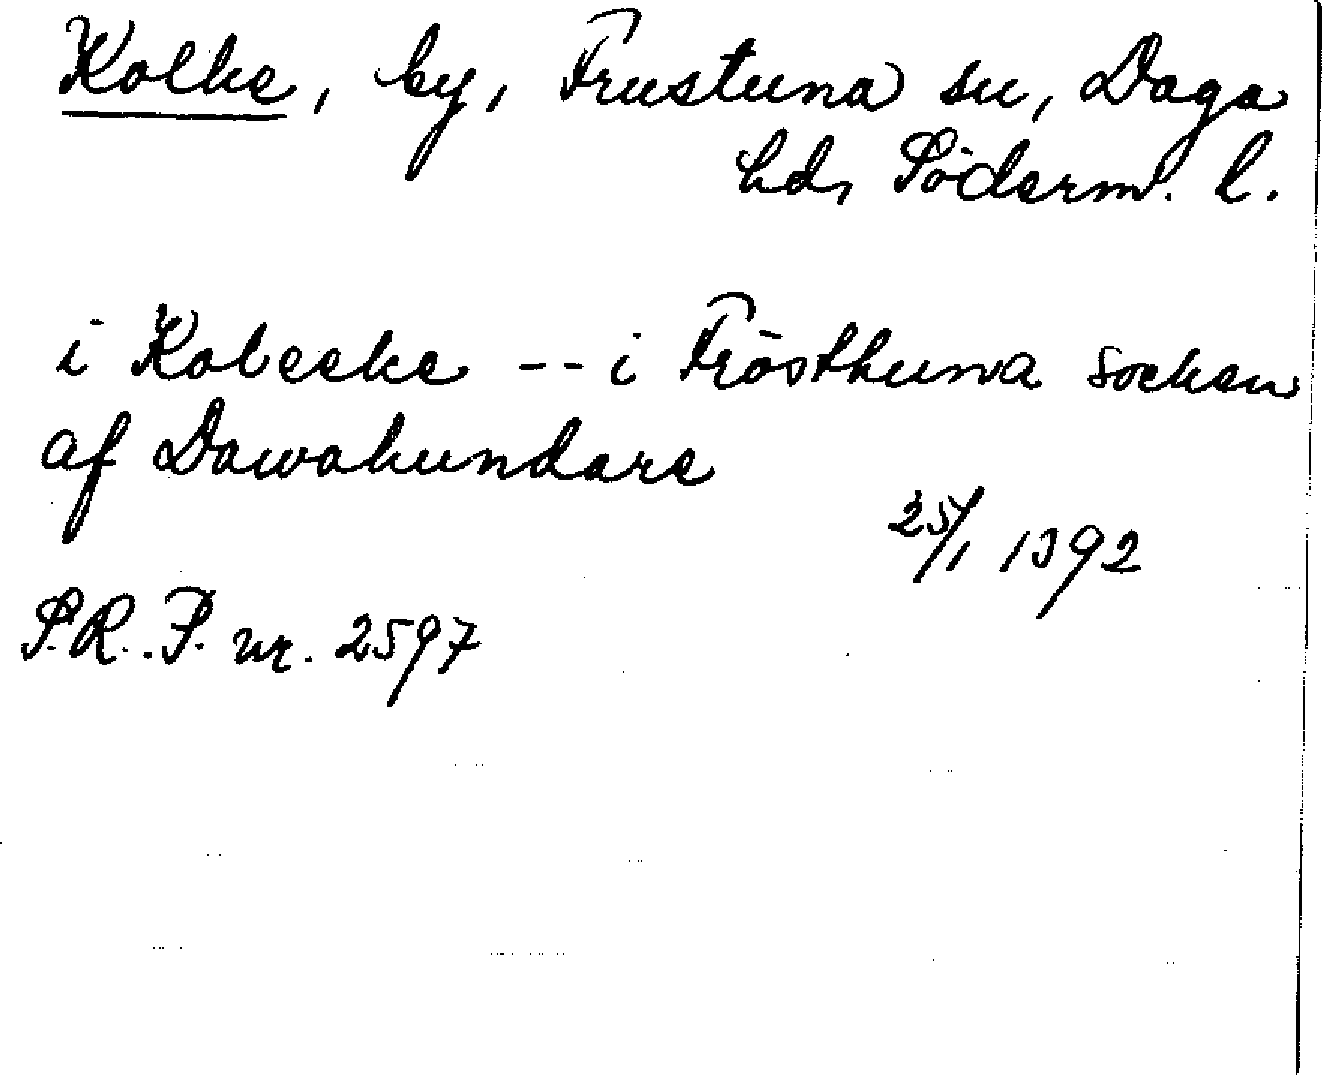 Kolke, by, Frustuna sn, Daga
hd, Söderm. l.
i Kobeeke -- i Frösthuna socken
af Dawahundare
25/1 1392
S.R.P. nr. 2597